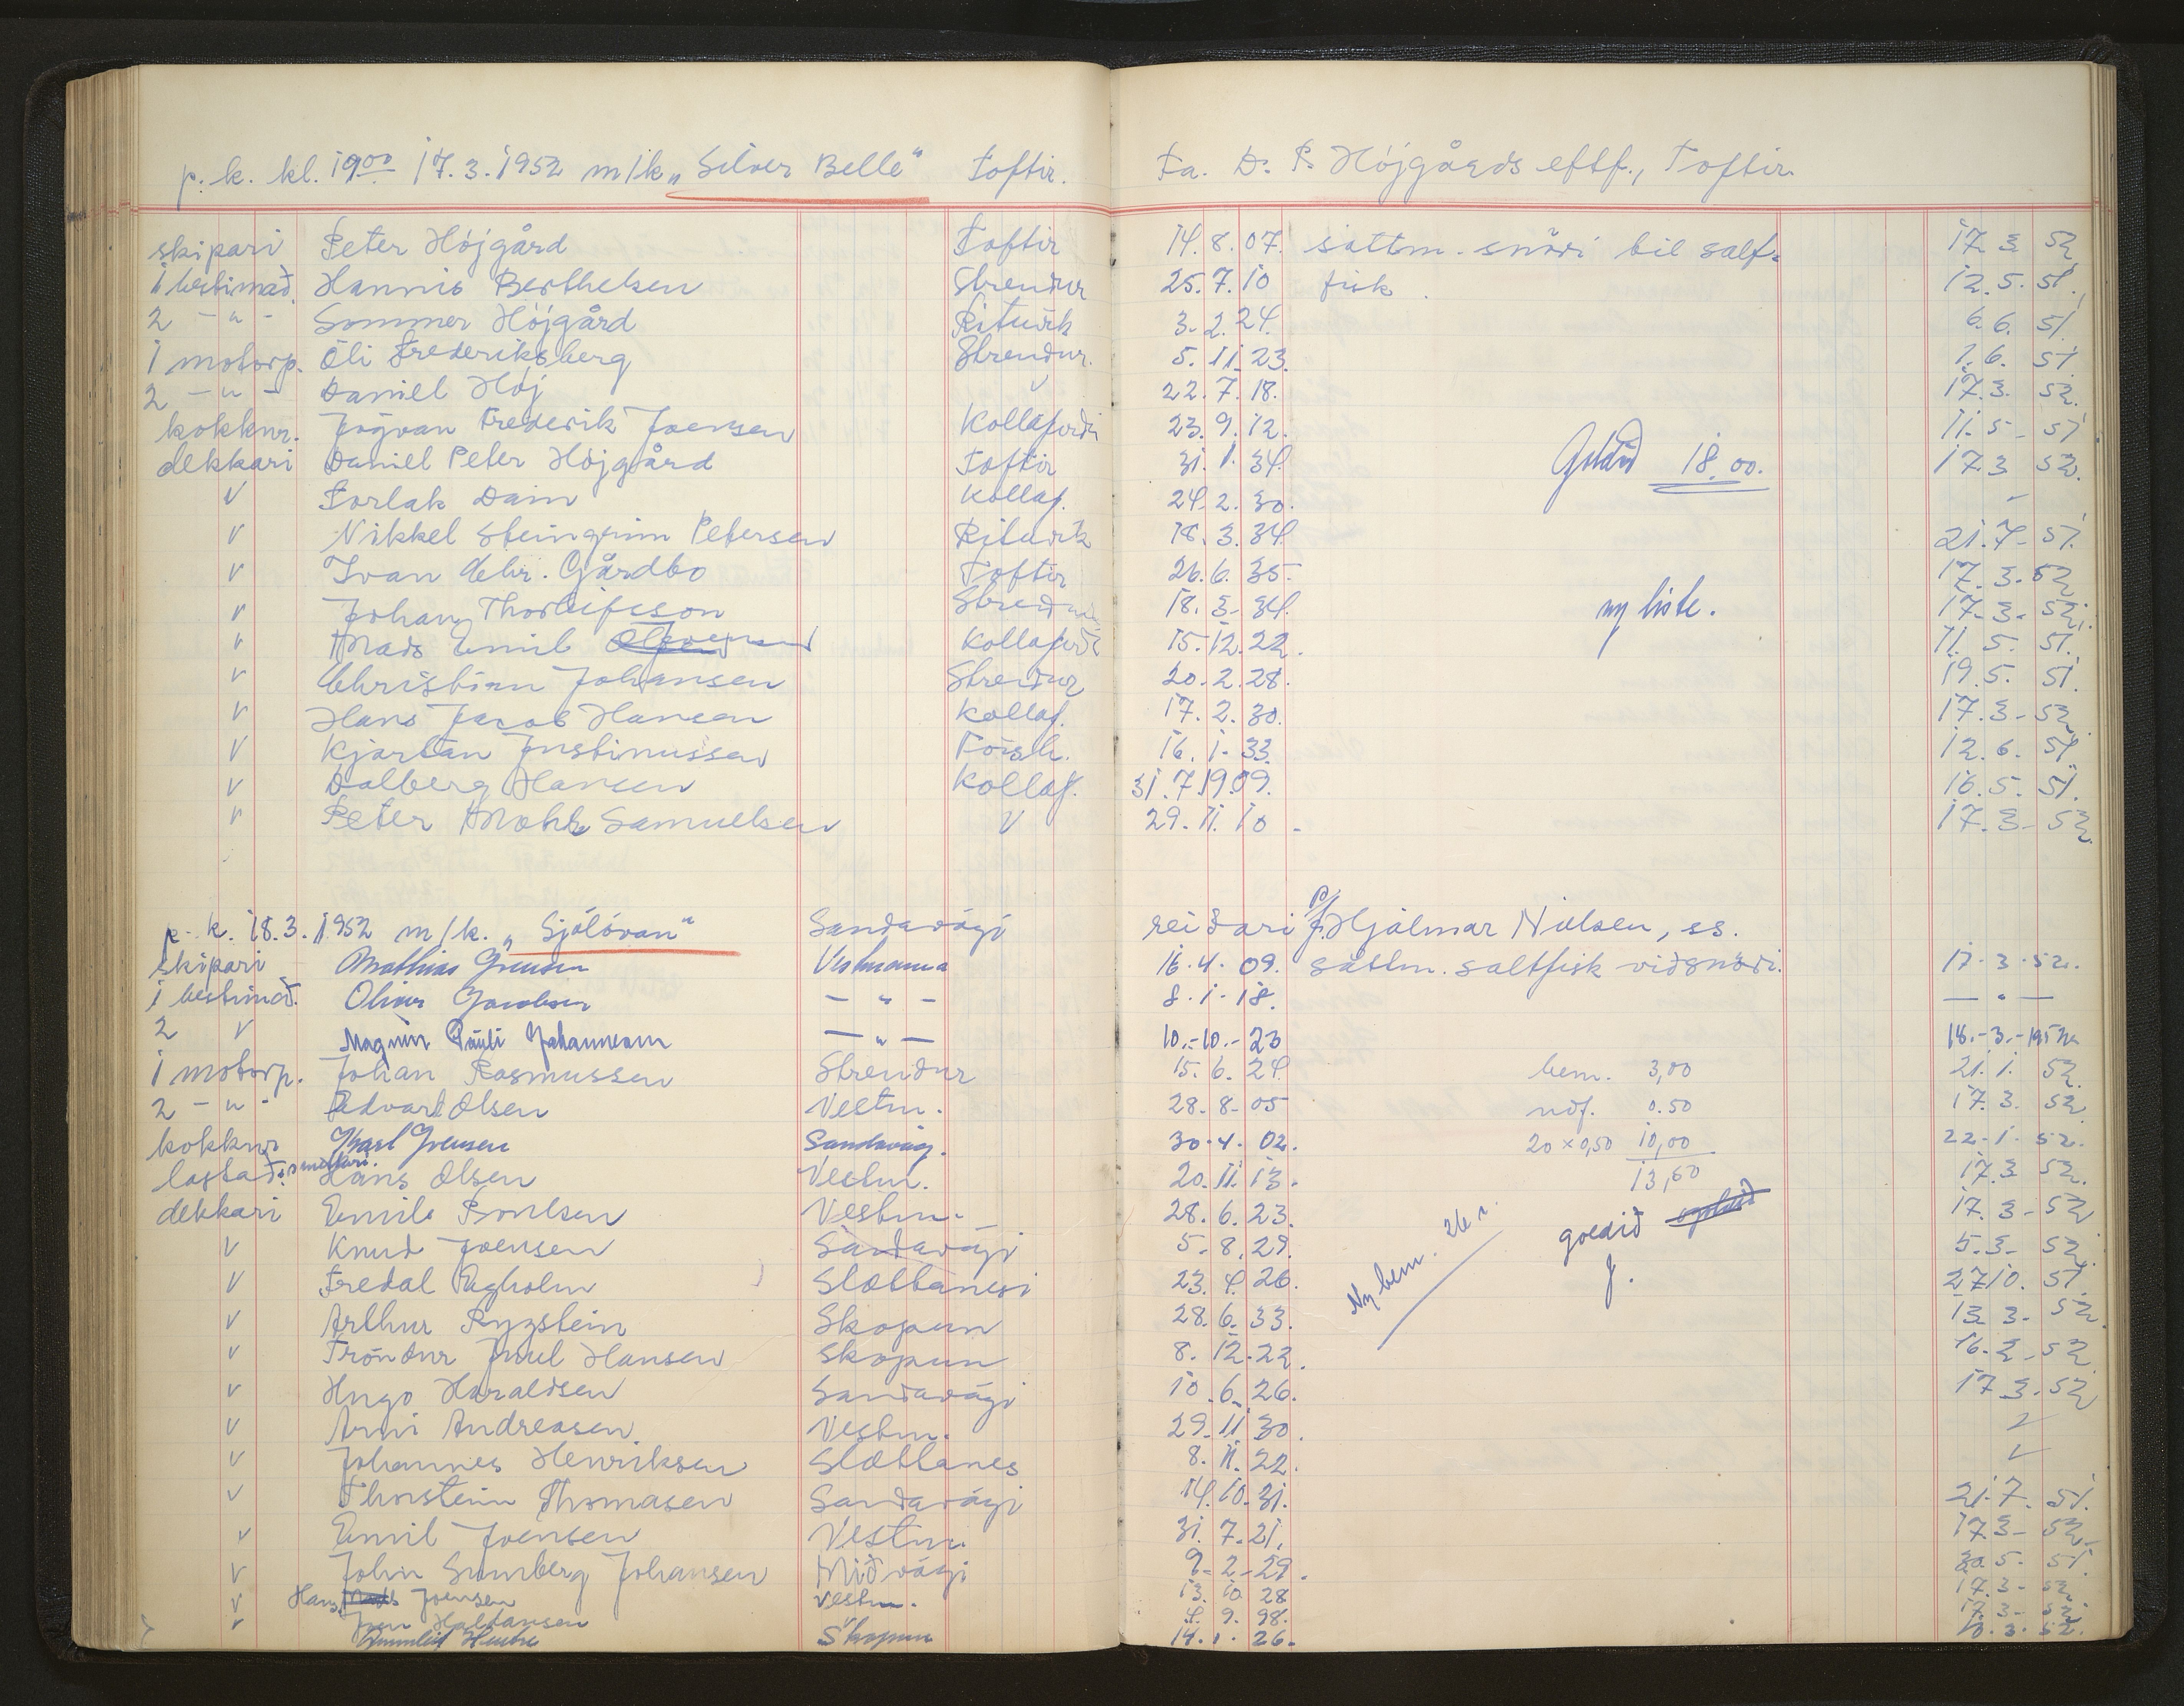 p. k. kl. 19⁰⁰ 17.3.1952 m/k „Silver Belle“ Toftir. Fa. D. P. Højgårds eftf., Toftir.
skipari Peter Højgård Toftir 14.8.07. sáttm. snöri til salt- 17.3 52
1 bestimað. Hannis Berthelsen Strendur 25.7.10 fisk. 12.5.51.
2 -"- Sommer Højgård Rituvík 3.2.24. 6.6.51
1 motorp. Óli Frederiksberg Strendur. 5.11.23. 1.6.51.
2 -"- Daniel Høj v 22.7.18. 17.3.52.
kokkur. Jógvan Frederik Joensen Kollafirði 23.9.12. 11.5-51
dekkari Daniel Peter Højgård Toftir 31.1.34. Goldið 18.00. 17.3 52.
v Torlak Dam Kollaf. 24.2.30. -
v Nikkel Steingrim Petersen Rituvík 18.3.34. 21.7-51.
v Ivan Chr. Gårdbo Toftir 26.6.35. 17.3.52
v Johan Thorleifsson Strendur 18.3-34. ny liste. 17.3-52.
v Mads Emil Joensen Kollafirði 15.12.22. 11.5.51.
v Christian Johansen Strendur 20.2.28. 19.5.51.
v Hans Jacob Hansen Kollaf. 17.2.30. 17.3-52
v Kjartan Justinussen 16.1.33. 12.6.51.
v Dalberg Hansen Kollaf. 31.7.1909. 16.5.51.
v Peter Mohr Samuelsen v 29.11.10. 17.3-52
p. k. 18.3.1952 m/k. „Sjólóvan“ Sandavági reiðari p/f. Hjálmar Nielsen, ss.
skipari Mathias Joensen Vestmanna 16.4.09. sáttm. saltfisk við snöri. 17.3.52.
1 bestimað. Oliver Jacobsen -"- 8.1.18. -"-
2 v Magnus Pauli Johannesen -"- 10.-10.-23 18.-3.-1952
1 motorp. Johan Rasmussen Strendur 15.6.24. bem. 3,00 21.1.52.
2 -"- Edvard Olsen Vestm. 28.8-05 0.50 17.3.52
kokkur Joensen Sandavág. 30.4.02. 20 × 0,50 10,00 22.1.52.
lastað. Hans Olsen Vestm. 20.11.13. 13,50 17.3 52.
dekkari Emil Poulsen Vestm. 28.6.23. Ny bem. 26 goldið 17.3-52
v Knud Joensen Sandavági 5.8.29. J. 5.3-52
v Fredal Egholm Slættanesi 23.4.26. 27.10.51
v Arthur Rygstein Skopun 28.6.33. 13.3.52.
v Tróndur Juul Hansen Skopun 8.12.22. 16.2-52
v Hugo Haraldsen Sandavági 10.6.26. 17.3.52
v Arni Andreasen Vestm. 29.11.30. v
v Johannes Henriksen Slættanes 8.11.22. v
v Thorstein Thomasen Sandavági 14.10.31. 21.7.51.
v Emil Joensen Vestm. 31.7.21. 17.3-52
v John Sumberg Johansen Miðvági 9-2-29. 30.5.51.
v Hans Joensen Vestm. 13.10 28 17.3-52
v Haldansen v 4.9.98. 17.3-52
Skopun 14.1.26. 10.3.52.